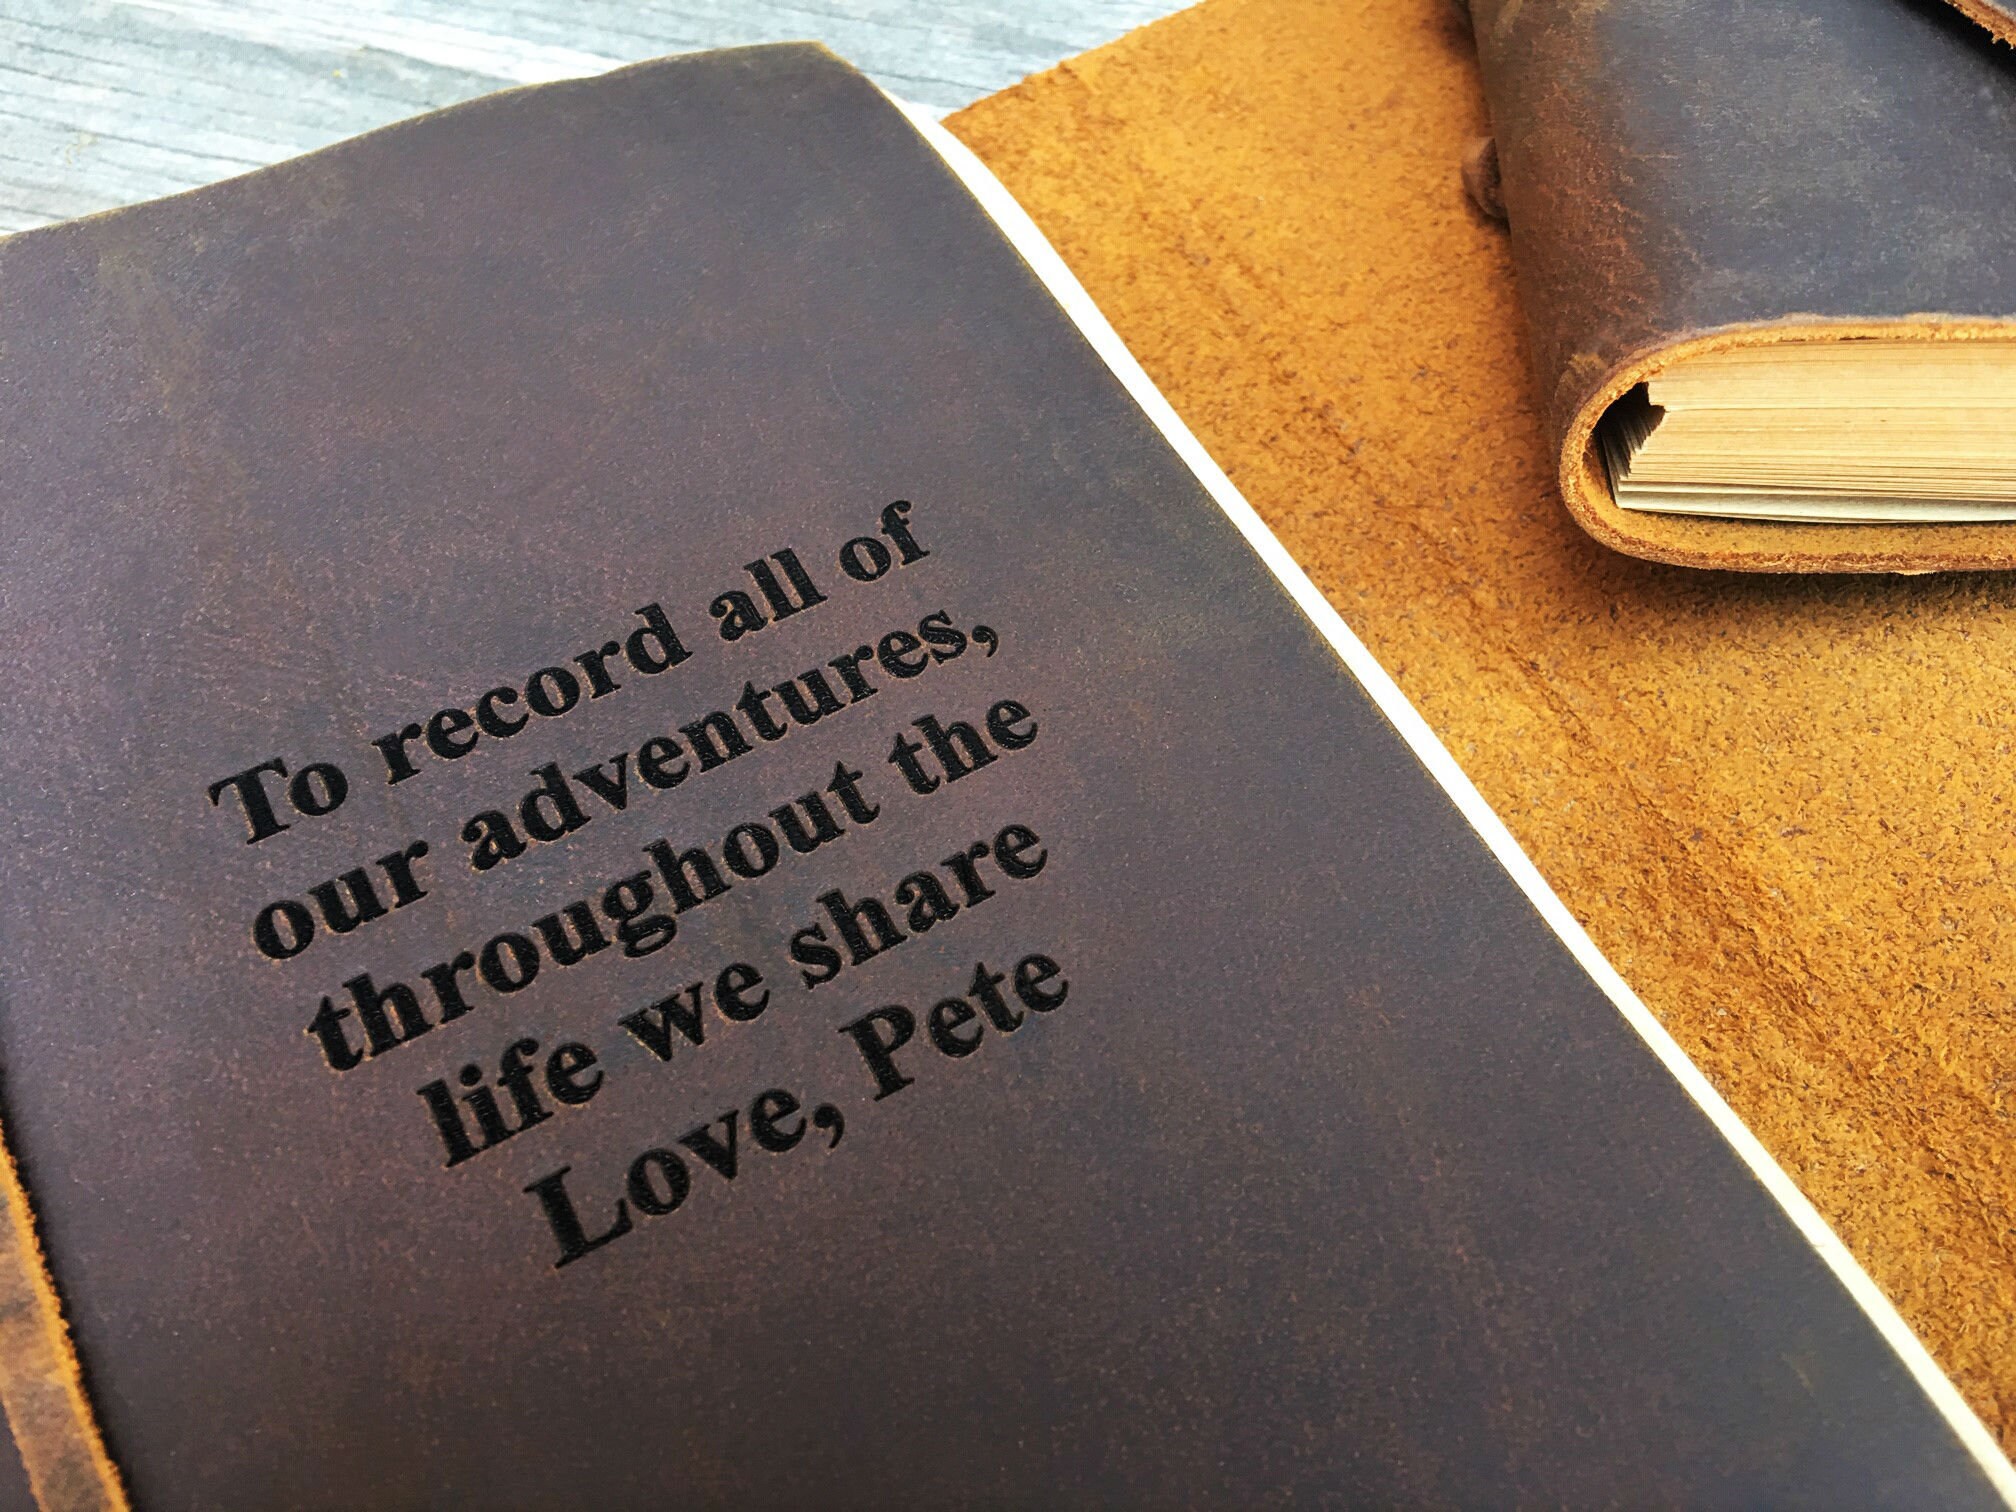 To record all of
our adventures,
throughout the
life we share
Love, Pete